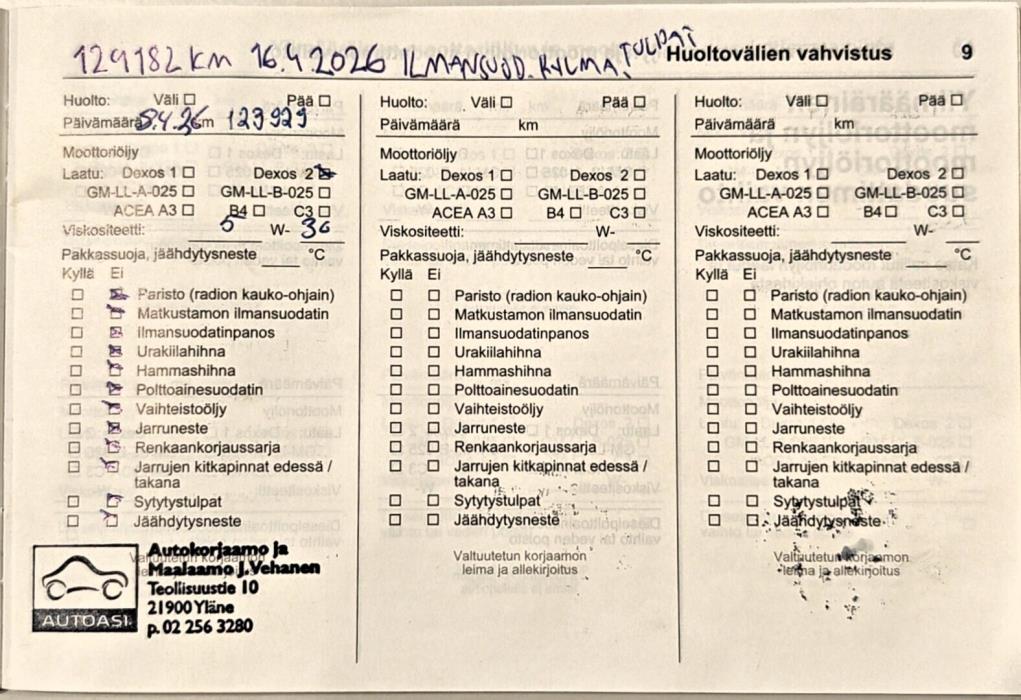 129182 KM 16.4.2026 ILMANSUOD. RYLMA. TULPAT
Huoltovälien vahvistus 9
Huolto: Väli Pää
Päivämäärä 5.4.26 km 123929
Moottoriöljy
Laatu: Dexos 1 Dexos 2
GM-LL-A-025 GM-LL-B-025
ACEA A3 B4 C3
Viskositeetti: 5 W- 30
Pakkassuoja, jäähdytysneste °C
Kyllä Ei
Paristo (radion kauko-ohjain)
Matkustamon ilmansuodatin
Ilmansuodatinpanos
Urakiilahihna
Hammashihna
Polttoainesuodatin
Vaihteistoöljy
Jarruneste
Renkaankorjaussarja
Jarrujen kitkapinnat edessä /
takana
Sytytystulpat
Jäähdytysneste
Valtuutetun korjaamon
AUTOASI
Autokorjaamo ja
Maalaamo J.Vehanen
Teollisuustie 10
21900 Yläne
p. 02 256 3280
Huolto: Väli Pää
Päivämäärä km
Moottoriöljy
Laatu: Dexos 1 Dexos 2
GM-LL-A-025 GM-LL-B-025
ACEA A3 B4 C3
Viskositeetti: W-
Pakkassuoja, jäähdytysneste °C
Kyllä Ei
Paristo (radion kauko-ohjain)
Matkustamon ilmansuodatin
Ilmansuodatinpanos
Urakiilahihna
Hammashihna
Polttoainesuodatin
Vaihteistoöljy
Jarruneste
Renkaankorjaussarja
Jarrujen kitkapinnat edessä /
takana
Sytytystulpat
Jäähdytysneste
Valtuutetun korjaamon
leima ja allekirjoitus
Huolto: Väli Pää
Päivämäärä km
Moottoriöljy
Laatu: Dexos 1 Dexos 2
GM-LL-A-025 GM-LL-B-025
ACEA A3 B4 C3
Viskositeetti: W-
Pakkassuoja, jäähdytysneste °C
Kyllä Ei
Paristo (radion kauko-ohjain)
Matkustamon ilmansuodatin
Ilmansuodatinpanos
Urakiilahihna
Hammashihna
Polttoainesuodatin
Vaihteistoöljy
Jarruneste
Renkaankorjaussarja
Jarrujen kitkapinnat edessä /
takana
Sytytystulpat
Jäähdytysneste
Valtuutetun korjaamon
leima ja allekirjoitus